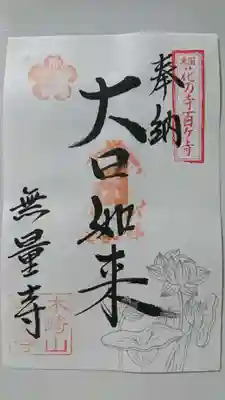 奉納
東国花の寺百ヶ寺
大日如来
無量寺
木崎山